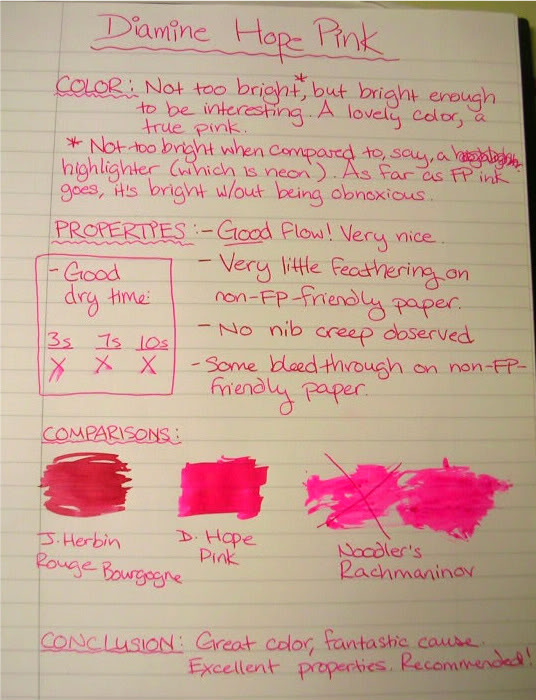 Diamine Hope Pink
COLOR: Not too bright*, but bright enough
to be interesting. A lovely color, a
true pink.
* Not too bright when compared to, say, a
highlighter (which is neon). As far as FP ink
goes, it's bright w/out being obnoxious.
PROPERTIES: - Good Flow! Very nice.
- Very little feathering on
non-FP-friendly paper.
- No nib creep observed
- Some bleedthrough on non-FP-
friendly paper.
- Good
dry time:
3s 7s 10s
X X X
COMPARISONS:
J. Herbin
Rouge Bourgogne
D. Hope
Pink
Noodler's
Rachmaninov
CONCLUSION: Great color, fantastic cause.
Excellent properties. Recommended!